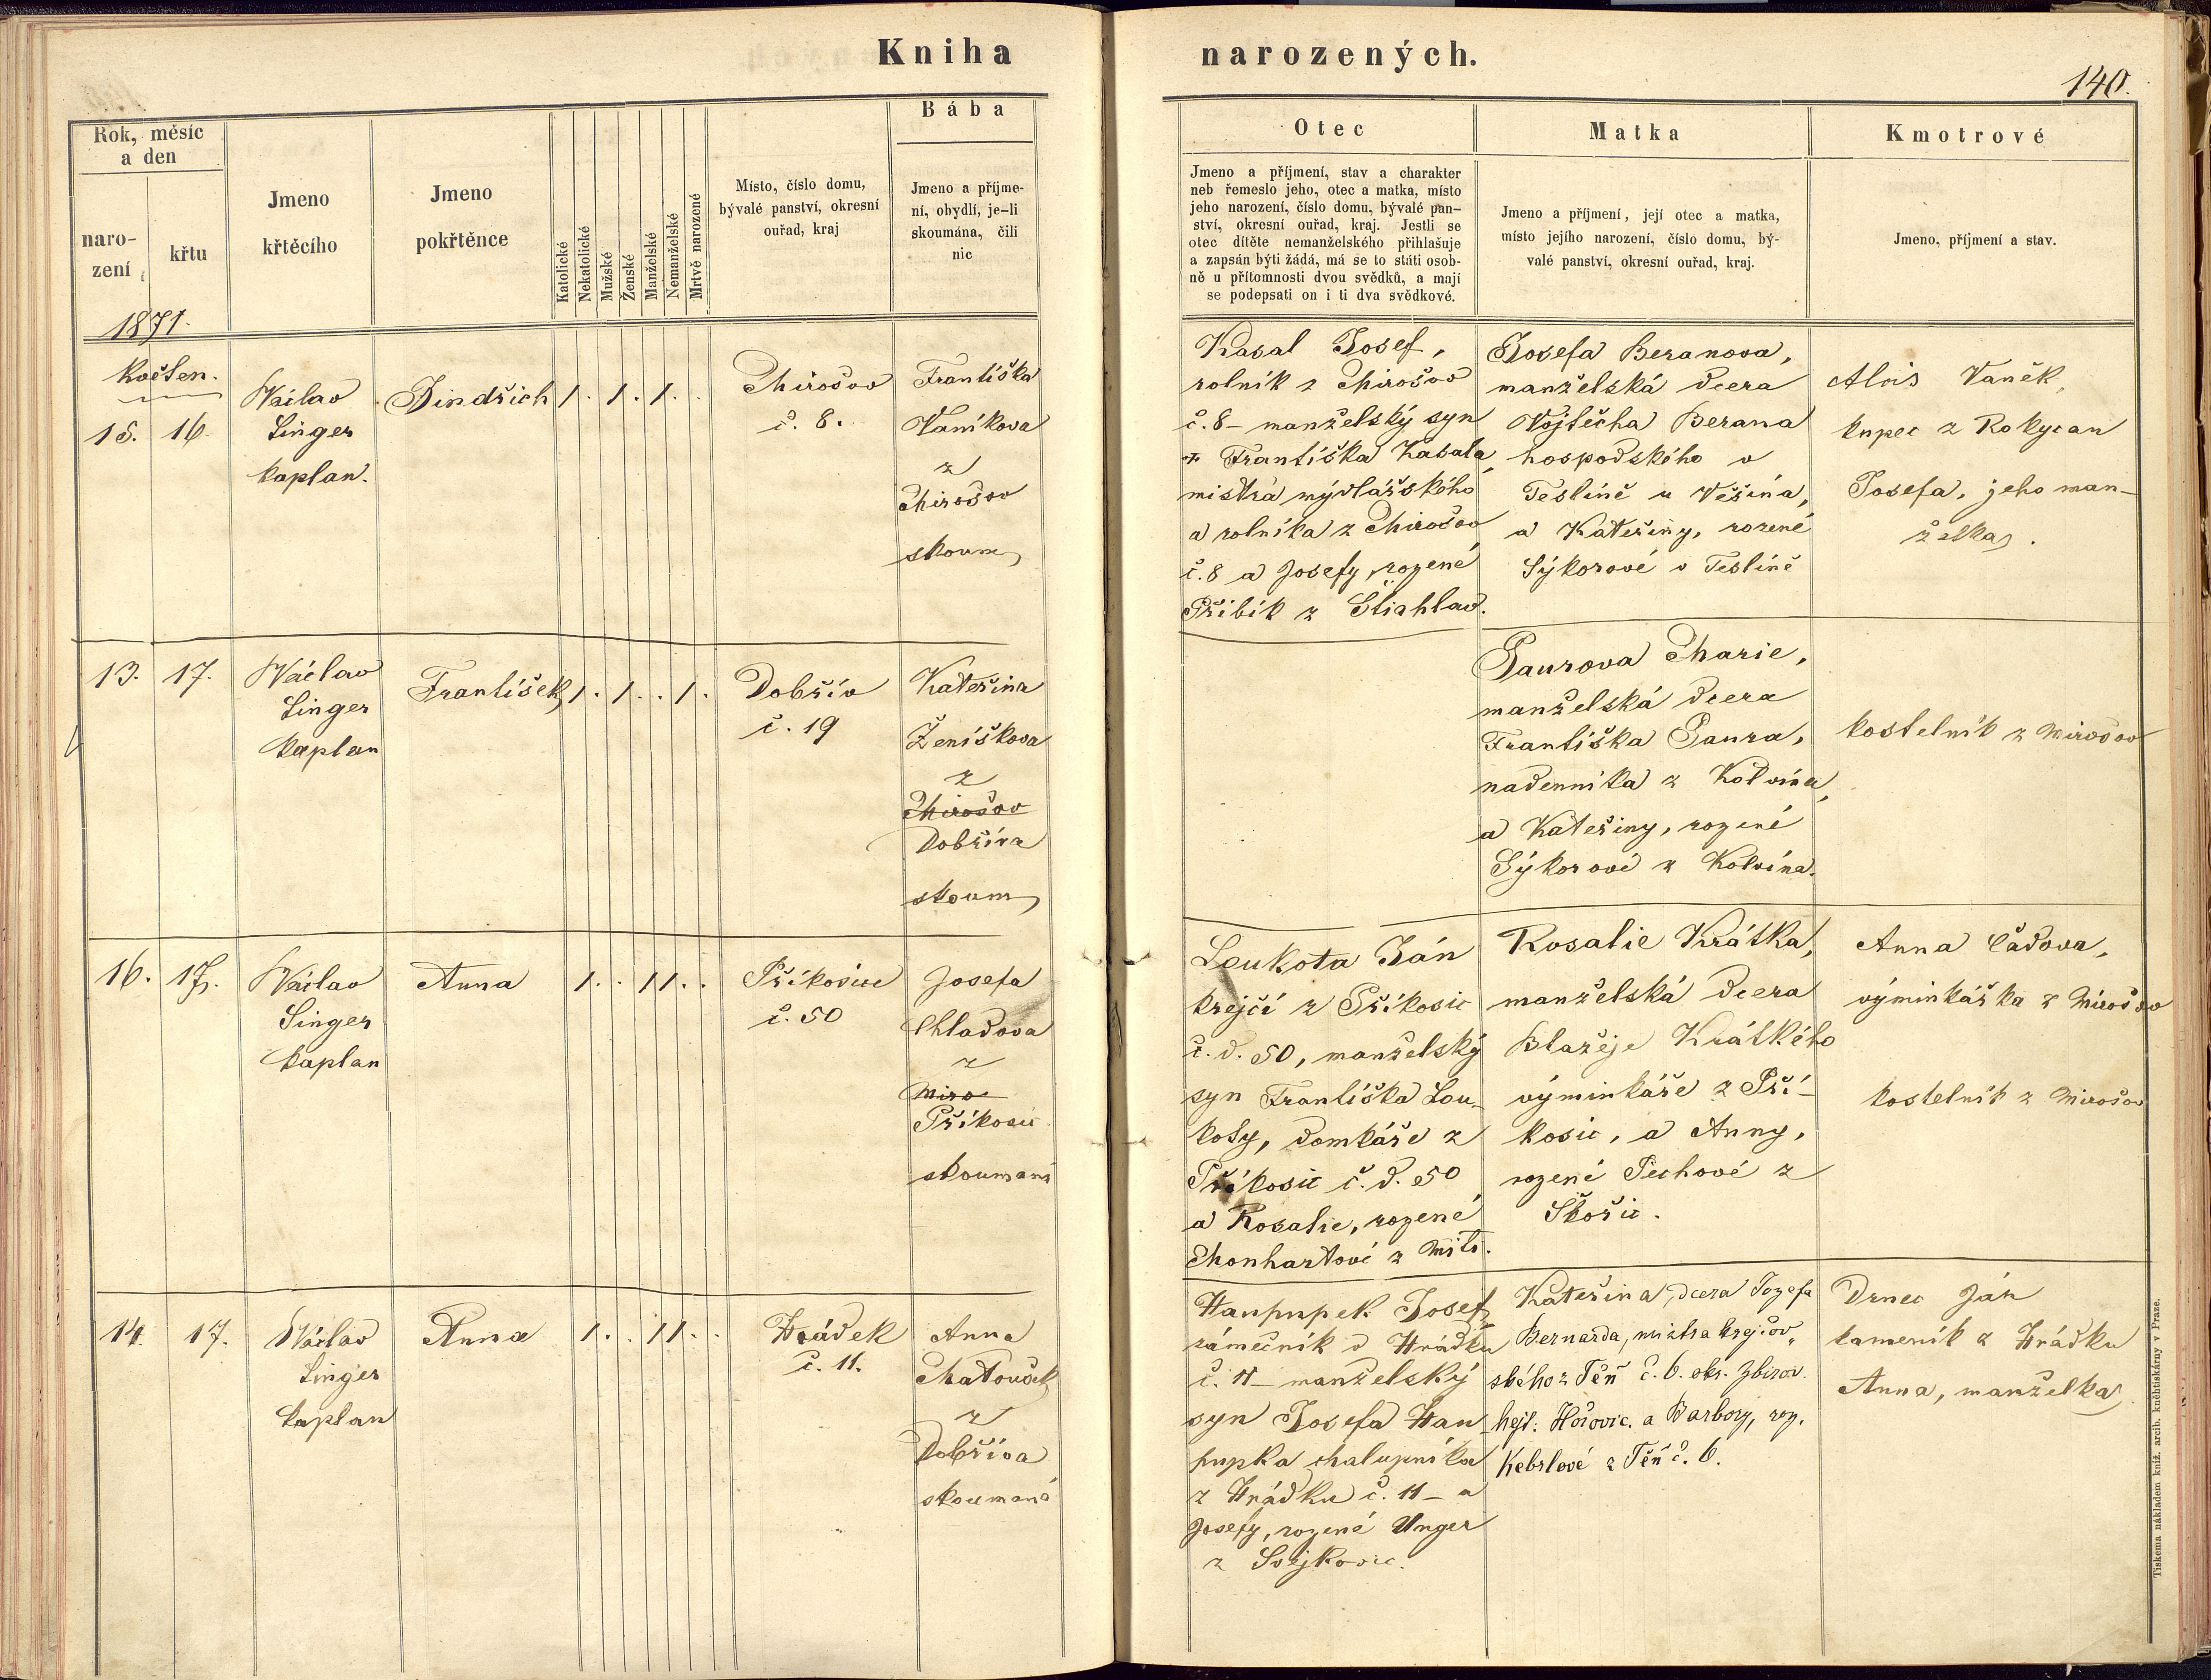 Kniha narozených.
140.
Rok, měsíc
a den
naro-
zení
křtu
Jmeno
křtěcího
Jmeno
pokřtěnce
Katolické
Nekatolické
Mužské
Ženské
Manželské
Nemanželské
Mrtvě narozené
Místo, číslo domu,
bývalé panství, okresní
ouřad, kraj
Bába
Jmeno a příjme-
ní, obydlí, je-li
skoumána, čili
nic
Otec
Jmeno a příjmení, stav a charakter
neb řemeslo jeho, otec a matka, místo
jeho narození, číslo domu, bývalé pan-
ství, okresní ouřad, kraj. Jestli se
otec dítěte nemanželského přihlašuje
a zapsán býti žádá, má se to státi osob-
ně u přítomnosti dvou svědků, a mají
se podepsati on i ti dva svědkové.
Matka
Jmeno a příjmení, její otec a matka,
místo jejího narození, číslo domu, bý-
valé panství, okresní ouřad, kraj.
Kmotrové
Jmeno, příjmení a stav.
1871.
Květen.
15. 16.
Václav
Singer
kaplan.
Jindřich
1. 1. 1.
Mirošov
č. 8.
Františka
Vaníkova
z
Mirošov
skoum
Kasal Josef,
rolník z Mirošov
č. 8 – manželský syn
Františka Kasala
mistra mýdlářského
a rolníka z Mirošov
č. 8 a Josefy, rozené
Přibík z Štiahlav.
Josefa Beranova,
manželská dcera
Vojtěcha Berana
hospodského v
Teslíně u Věšína,
a Kateřiny, rozené
Sýkorové v Teslíně
Alois Vaněk,
kupec z Rokycan
Josefa, jeho man-
želka.
13. 17.
Václav
Singer
kaplan
František
1. 1. . 1.
Dobřív
č. 19
Kateřina
Ženíškova
z
Mirošov
Dobříva
skoum
Paurova Marie,
manželská dcera
Františka Paura,
nadenníka z Kolvína,
a Kateřiny, rozené
Sýkorové z Kolvína.
kostelník z Mirošov
16. 17.
Václav
Singer
kaplan
Anna
1. . 11. .
Příkosice
č. 50
Josefa
Chladova
z
Miro
Příkosic
skoumaná
Loukota Ján
krejčí z Příkosic
č. d. 50, manželský
syn Františka Lou-
koty, domkáře z
Příkosic č. d. 50
a Rosalie, rozené
Monhartové z Mítı.
Rosalie Krátka,
manželská dcera
Blažeje Krátkého
výminkáře z Pří-
kosic, a Anny,
rozené Pechové z
Skořic.
Anna Čádova,
výminkářka z Mirošov
kostelník z Mirošov
14. 17.
Václav
Singer
kaplan
Anna
1. . 11. .
Hrádek
č. 11.
Anna
Matoušek
z
Dobříva
skoumaná
Haupupek Josef,
zámečník v Hrádku
č. 11 – manželský
syn Josefa Hau-
pupka chalupníka
z Hrádku č. 11 – a
Josefy, rozené Unger
z Svejkovic.
Kateřina, dcera Jozefa
Bernarda, mistra krejčov-
ského z Těň č. 6. okr. Zbirov.
hejt. Hořovic. a Barbory, roz.
Kebrlové z Těň č. 6.
Drnec Ján
kameník z Hrádku
Anna, manželka
Tiskem a nákladem kníž. arcib. knihtiskárny v Praze.